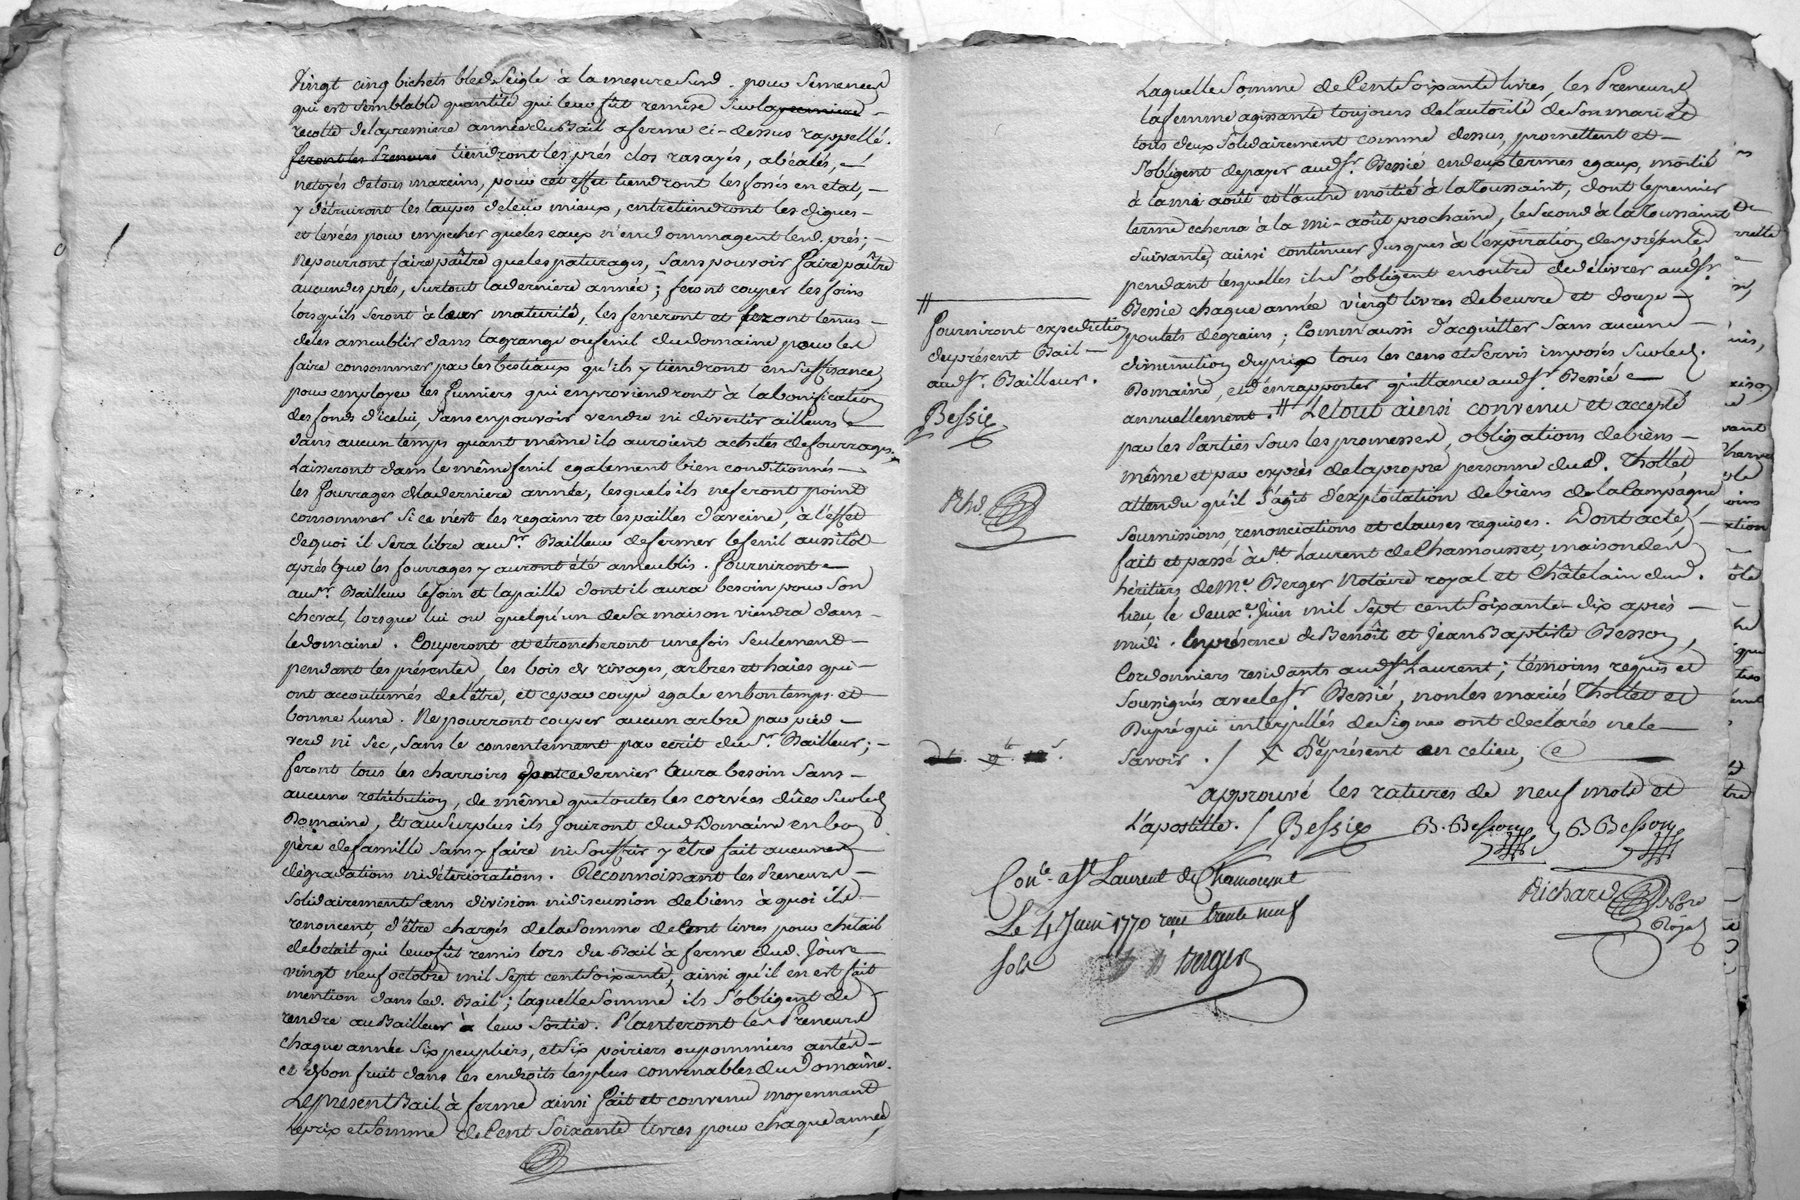 Vingt cinq bichets bled Seigle à la mesure Susd. pour Semences
qui est Semblable quantité qui leur fût remise Sur la premiere
recolte de la premiere année du Bail a ferme ci-dessus rappellé.
feront les Preneurs tiendront les prés clos rasayés, abéalés, et
netoyés de tous marcins, pour cet effet tiendront les fossés en état,
y détruiront les taupes de leur mieux, entretiendront les digues
et levées pour empecher que les eaux n'endommagent lesd. prés;
Ne pourront faire paître que les paturages, Sans pouvoir faire paître
aucun des prés, Surtout la derniere année; feront couper les foins
lorsqu'ils Seront à leur maturité, les feneront et seront tenus
de les ameublir dans la grange ou fenil du domaine pour les
faire consommer par les bestiaux qu'ils y tiendront en Suffisance,
pour employer les fumiers qui en proviendront à la bonification
des fonds d'icelui, Sans en pouvoir vendre ni divertir ailleurs
dans aucun temps quant même ils auroient achetés de fourrages.
Laisseront dans le même fenil egalement bien conditionnés
les fourrages de la derniere année, lesquels ils ne feront point
consommer Si ce n'est les regains et les pailles d'aveine, à l'effet
de quoi il Sera libre aud Sr. Bailleur de fermer le fenil aussitôt
après que les fourrages y auront été ameublis. fourniront
aud Sr. Bailleur le foin et la paille dont il aura besoin pour Son
cheval, lorsque lui ou quelqu'un de Sa maison viendra dans
le domaine. Couperont et etroncheront une fois Seulement
pendant les présentes, les bois de rivages, arbres et haies qui
ont accoutumés de l'être, et ce par coupe egale en bon temps et
bonne Lune. Ne pourront couper aucun arbre par pied
verd ni Sec, Sans le consentement par ecrit dud Sr. Bailleur;
feront tous les charroirs dont ce dernier aura besoin Sans
aucune retribution, de même que toutes les corvées dûes Sur led
Domaine, Et au Surplus ils Jouiront dud Domaine en bon
père de famille Sans y faire ni Souffrir y être fait aucunes
dégradations ni détériorations. Reconnoissant les Preneurs
Solidairement Sans division ni discussion de biens à quoi ils
renoncent, d'être chargés de la Somme de Cent livres pour chetail
de betail qui leur fût remis lors du Bail à ferme dud. Jour
vingt neuf octobre mil Sept cent Soixante, ainsi qu'il en est fait
mention dans led. Bail; laquelle Somme ils S'obligent de
rendre au Bailleur à leur Sortie. Planteront les Preneurs
chaque année Six peupliers, et Six poiriers ou pommiers antés
et de bon fruit dans les endroits les plus convenables du Domaine.
Le présent Bail à ferme ainsi fait et convenu moyennant
le prix et Somme de Cent Soixante livres pour chaque année,
Laquelle Somme de Cent Soixante livres, les Preneurs
la femme agissante toujours de l'autorité de Son mari et
tous deux Solidairement comme dessus, promettent et
S'obligent de payer aud Sr. Bessié en deux termes egaux, moitié
à la mi août et l'autre moitié à la Toussaint, dont le premier
terme echerra à la mi-août prochaine, le Second à la Toussaint
Suivante, ainsi continuer Jusques à l'expiration des présentes
pendant lesquelles ils S'obligent en outre de délivrer aud Sr.
Bessie chaque année vingt livres de beurre et douze
poulets de grains; Comm'aussi d'acquitter Sans aucune
diminution du prix tous les cens et Servis imposés Sur led.
Domaine, et d'en rapporter quittance aud Sr. Bessié
annuellement. # Le tout ainsi convenu et accepté
par les Parties Sous les promesses, obligations de biens
même et par exprès de la propre personne dud. Thollet
attendu qu'il S'agit d'exploitation de biens de la Campagne,
Soumissions, renonciations et clauses requises. Dont acte,
fait et passé à St. Laurent de Chamousset, maison des
héritiers de Me. Berger Notaire royal et Châtelain dud.
Lieu, le deuxe. Juin mil Sept cent Soixante-dix après
midi. En présence de Benoît et Jean Baptiste Besson,
Cordonniers residants aud St. Laurent; témoins requis et
Soussignés avec le Sr. Bessié, non les mariés Thollet et
Dupré qui interpellés de Signer ont declarés ne le
Savoir. / X De présent en ce lieu,
approuvé les ratures de neuf mots et
L'apostille. / Bessie B. Besson J B Besson
#
fourniront expedition
du présent Bail
aud Sr. Bailleur.
Bessie
Rhd
Conlé. a St Laurent de Chamousset
Le 4 Juin 1770 reçu trente neuf
sols Berger
Richard Nore
Royal